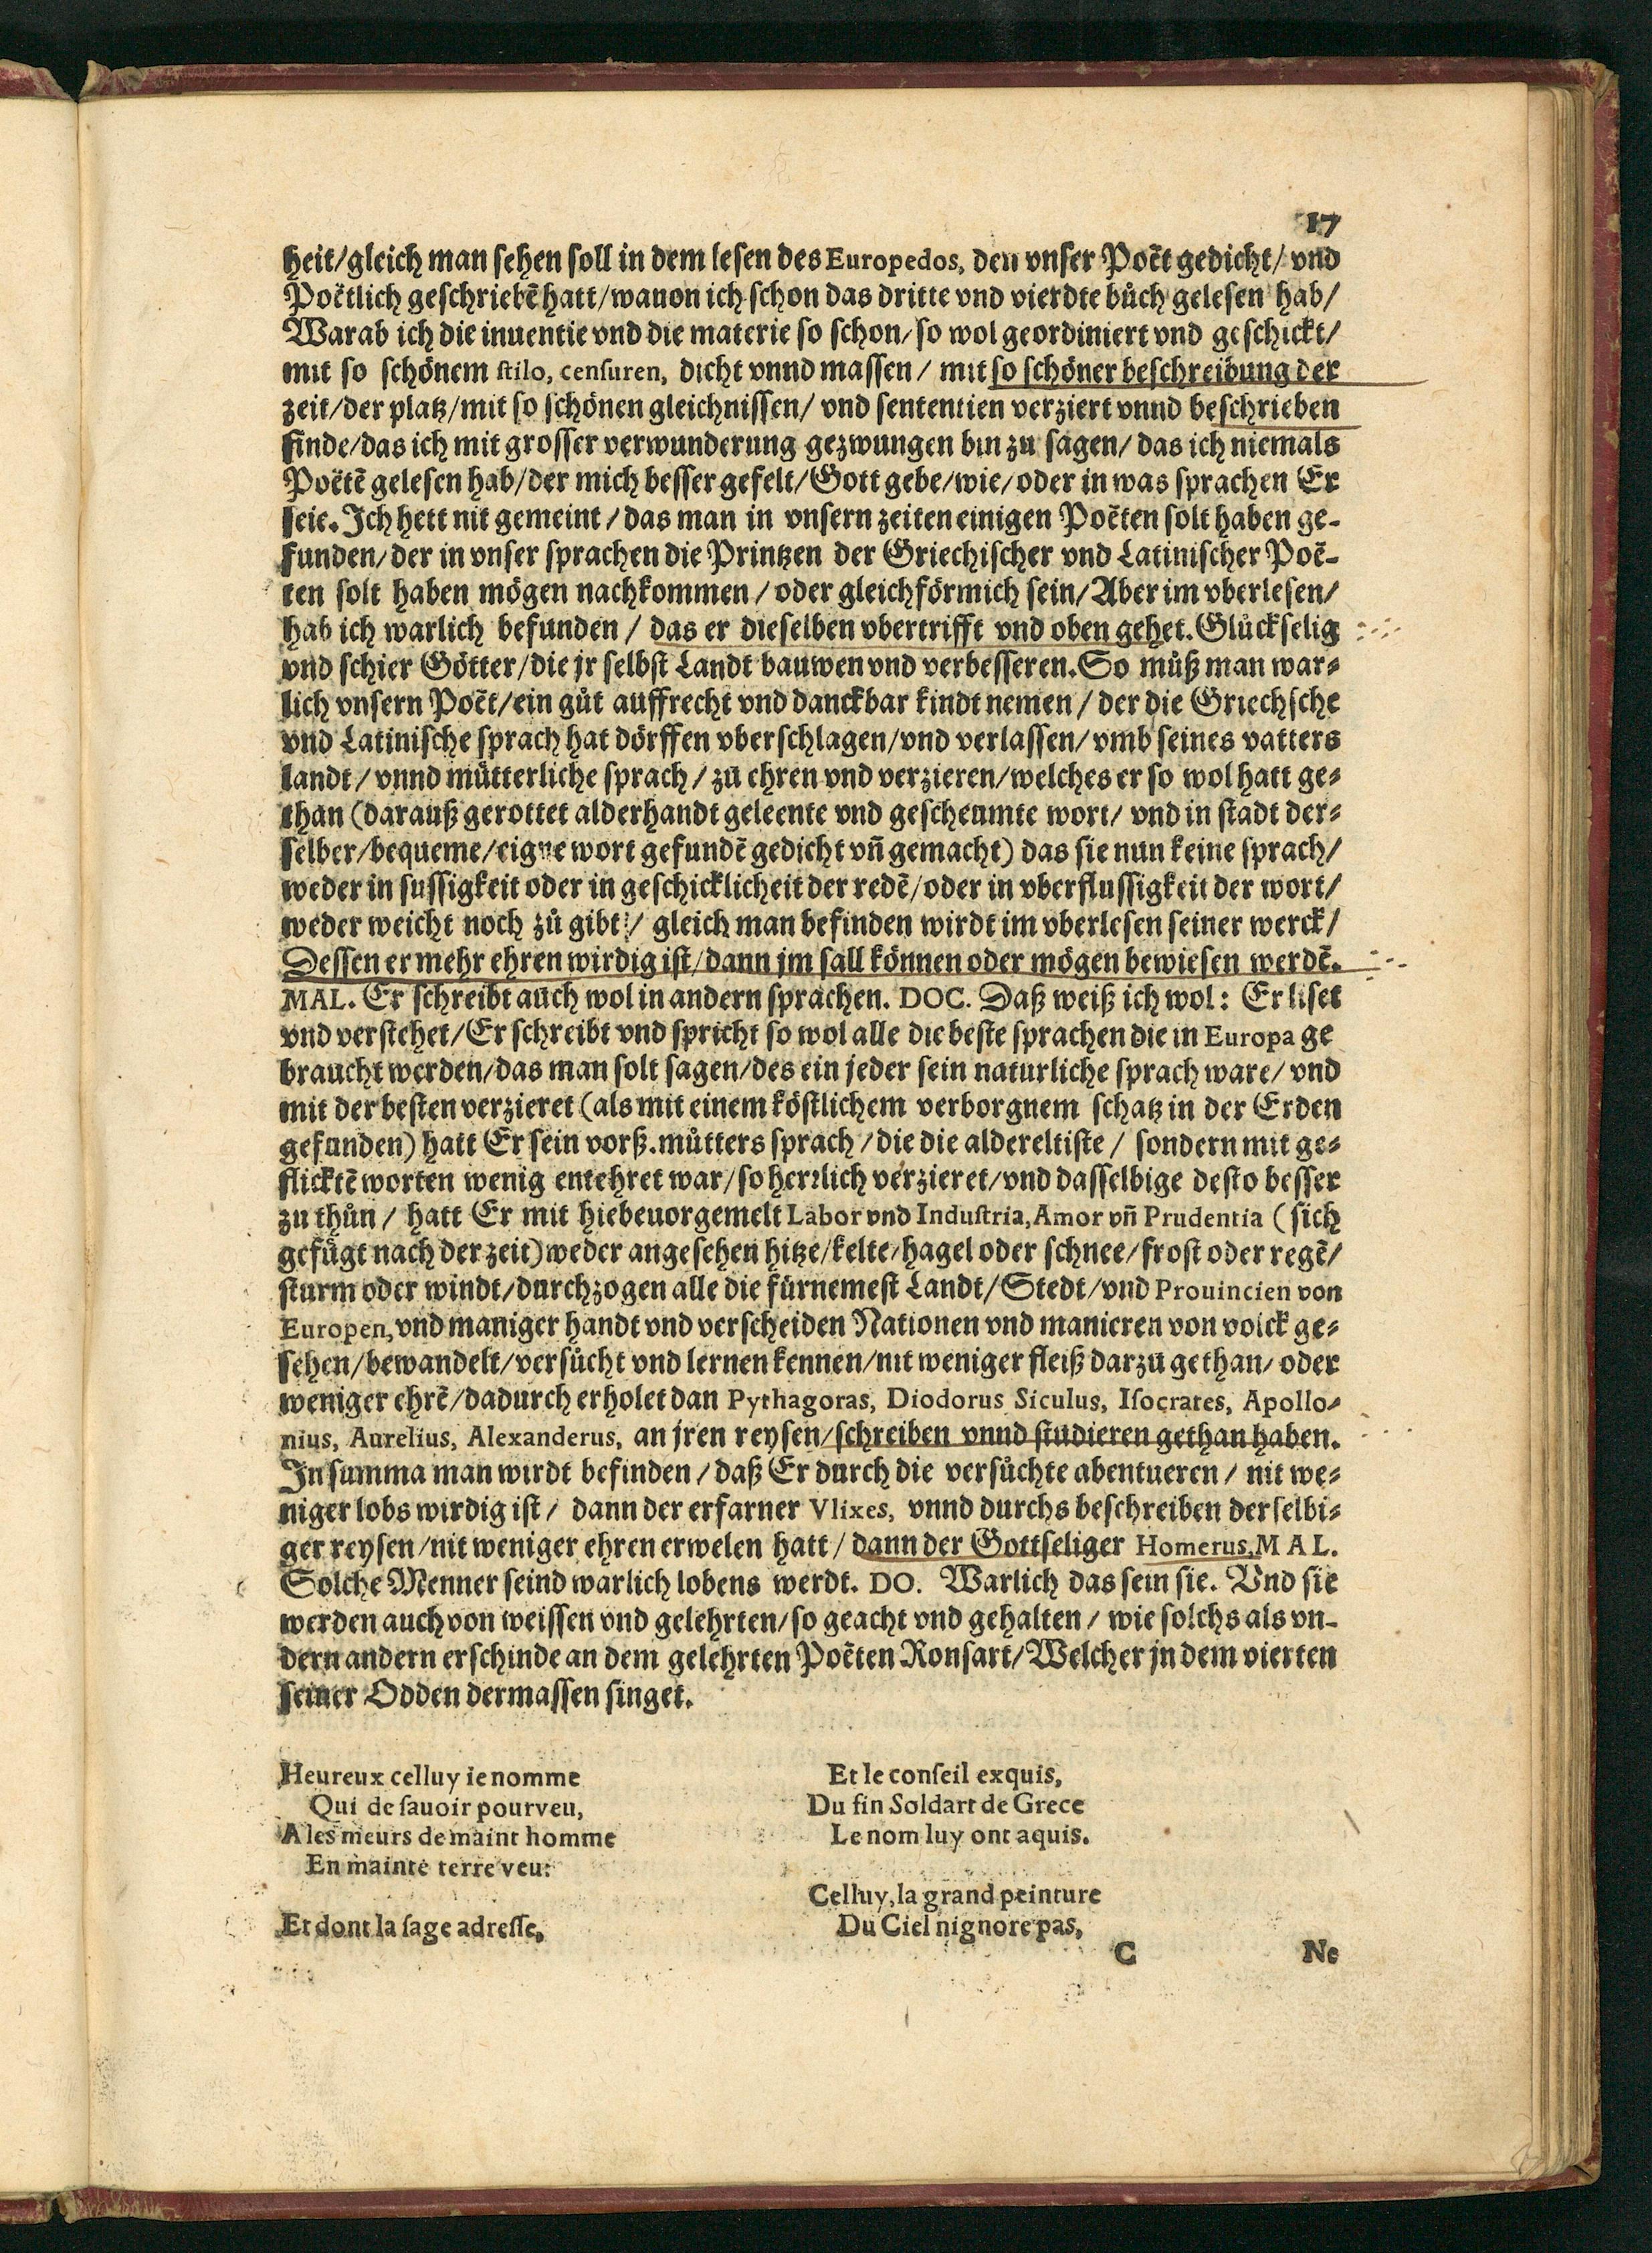 17
heit/gleich man sehen soll in dem lesen des Europedos, den vnser Poët gedicht/ vnd
Poëtlich geschriebē hatt/wauon ich schon das dritte vnd vierdte bůch gelesen hab/
Warab ich die inuentie vnd die materie so schon/ so wol geordiniert vnd geschickt/
mit so schönem ſtilo, cenſuren, dicht vnnd massen/ mit so schöner beschreibung der
zeit/der platz/mit so schönen gleichnissen/ vnd sententien verziert vnnd beschrieben
finde/das ich mit grosser verwunderung gezwungen bin zu sagen/ das ich niemals
Poëtē gelesen hab/der mich besser gefelt/Gott gebe/wie/oder in was sprachen Er
seie. Ich hett nit gemeint/das man in vnsern zeiten einigen Poëten solt haben ge-
funden/der in vnser sprachen die Printzen der Griechischer vnd Latinischer Poë-
ten solt haben mögen nachkommen/oder gleichförmich sein/Aber im vberlesen/
hab ich warlich befunden/ das er dieselben vbertrifft vnd oben gehet. Glückselig
vnd schier Götter/die jr selbst Landt bauwen vnd verbesseren. So můß man war-
lich vnsern Poët/ein gůt auffrecht vnd danckbar kindt nemen/ der die Griechsche
vnd Latinische sprach hat dörffen vberschlagen/vnd verlassen/ vmb seines vatters
landt/ vnnd můtterliche sprach/ zu ehren vnd verzieren/welches er so wol hatt ge-
than (darauß gerottet alderhandt geleente vnd gescheumte wort/ vnd in stadt der-
selber/bequeme/eigne wort gefundē gedicht vñ gemacht) das sie nun keine sprach/
weder in sussigkeit oder in geschicklicheit der redē/oder in vberflussigkeit der wort/
weder weicht noch zů gibt/ gleich man befinden wirdt im vberlesen seiner werck/
Dessen er mehr ehren wirdig ist/dann jm sall können oder mögen bewiesen werdē.
MAL. Er schreibt auch wol in andern sprachen. DOC. Daß weiß ich wol: Er liset
vnd verstehet/Er schreibt vnd spricht so wol alle die beste sprachen die in Europa ge
braucht werden/das man solt sagen/des ein jeder sein naturliche sprach ware/ vnd
mit der besten verzieret (als mit einem köstlichem verborgnem schatz in der Erden
gefunden) hatt Er sein vorß. můtters sprach/die die aldereltiste/ sondern mit ge-
flicktē worten wenig entehret war/so herrlich verzieret/vnd dasselbige desto besser
zu thůn/ hatt Er mit hiebeuorgemelt Labor vnd Induſtria, Amor vñ Prudentia (sich
gefůgt nach der zeit) weder angesehen hitze/kelte/hagel oder schnee/frost oder regē/
sturm oder windt/durchzogen alle die fürnemest Landt/Stedt/vnd Prouincien von
Europen, vnd maniger handt vnd verscheiden Nationen vnd manieren von volck ge-
sehen/bewandelt/versůcht vnd lernen kennen/nit weniger fleiß darzu gethan/ oder
weniger ehrē/dadurch erholet dan Pythagoras, Diodorus Siculus, Iſocrates, Apollo-
nius, Aurelius, Alexanderus, an jren reysen/schreiben vnnd studieren gethan haben.
In summa man wirdt befinden/daß Er durch die versůchte abentueren/ nit we-
niger lobs wirdig ist/ dann der erfarner Vlixes, vnnd durchs beschreiben derselbi-
ger reysen/nit weniger ehren erwelen hatt/ dann der Gottseliger Homerus. MAL.
Solche Menner seind warlich lobens werdt. DO. Warlich das sein sie. Vnd sie
werden auch von weissen vnd gelehrten/so geacht vnd gehalten/ wie solchs als vn-
dern andern erschinde an dem gelehrten Poëten Ronsart/Welcher jn dem vierten
seiner Odden dermassen singet.
Heureux celluy ie nomme
Qui de ſauoir pourveu,
A les meurs de maint homme
En mainte terre veu:
Et dont la ſage adreſſe,
Et le conſeil exquis,
Du fin Soldart de Grece
Le nom luy ont aquis.
Celluy, la grand peinture
Du Ciel n'ignore pas,
C Ne